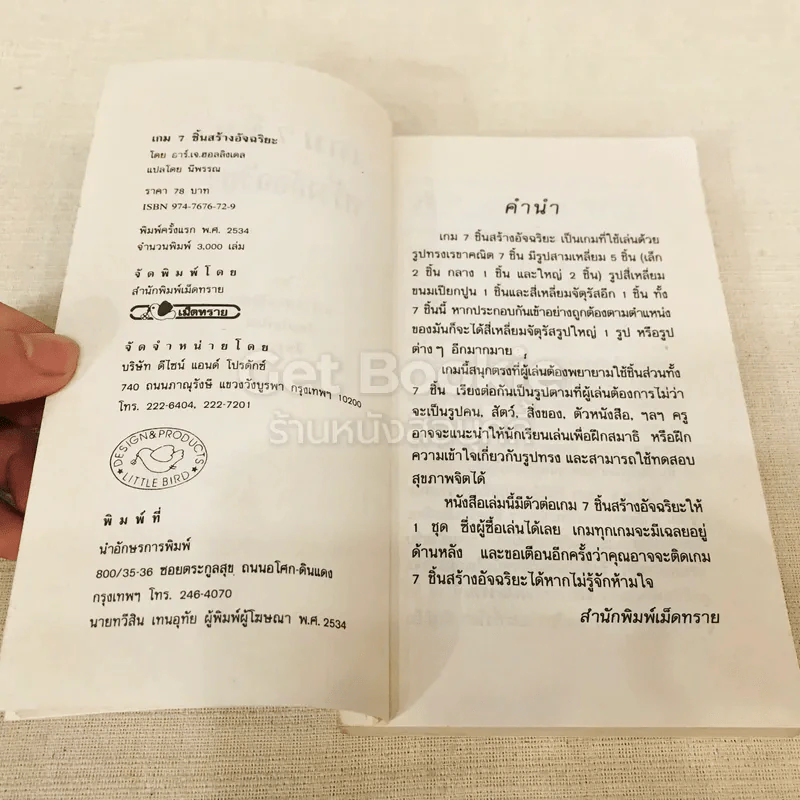 เกม 7 ชิ้นสร้างอัจฉริยะ
โดย อาร์.เจ.ฮอลลิงเดล
แปลโดย นิพรรณ
ราคา 78 บาท
ISBN 974-7676-72-9
พิมพ์ครั้งแรก พ.ศ. 2534
จำนวนพิมพ์ 3,000 เล่ม
จัดพิมพ์โดย
สำนักพิมพ์เม็ดทราย
เม็ดทราย
จัดจำหน่ายโดย
บริษัท ดีไซน์ แอนด์ โปรดักซ์
740 ถนนภาณุรังษี แขวงวังบูรพา กรุงเทพฯ 10200
โทร. 222-6404, 222-7201
DESIGN&PRODUCTS
LITTLE BIRD
พิมพ์ที่
นำอักษรการพิมพ์
800/35-36 ซอยตระกูลสุข ถนนอโศก-ดินแดง
กรุงเทพฯ โทร. 246-4070
นายทวีสิน เทนอุทัย ผู้พิมพ์ผู้โฆษณา พ.ศ. 2534
คำนำ
เกม 7 ชิ้นสร้างอัจฉริยะ เป็นเกมที่ใช้เล่นด้วย
รูปทรงเรขาคณิต 7 ชิ้น มีรูปสามเหลี่ยม 5 ชิ้น (เล็ก
2 ชิ้น กลาง 1 ชิ้น และใหญ่ 2 ชิ้น) รูปสี่เหลี่ยม
ขนมเปียกปูน 1 ชิ้นและสี่เหลี่ยมจัตุรัสอีก 1 ชิ้น ทั้ง
7 ชิ้นนี้ หากประกอบกันเข้าอย่างถูกต้องตามตำแหน่ง
ของมันก็จะได้สี่เหลี่ยมจัตุรัสรูปใหญ่ 1 รูป หรือรูป
ต่างๆ อีกมากมาย
เกมนี้สนุกตรงที่ผู้เล่นต้องพยายามใช้ชิ้นส่วนทั้ง
7 ชิ้น เรียงต่อกันเป็นรูปตามที่ผู้เล่นต้องการไม่ว่า
จะเป็นรูปคน, สัตว์, สิ่งของ, ตัวหนังสือ, ฯลฯ ครู
อาจจะแนะนำให้นักเรียนเล่นเพื่อฝึกสมาธิ หรือฝึก
ความเข้าใจเกี่ยวกับรูปทรง และสามารถใช้ทดสอบ
สุขภาพจิตได้
หนังสือเล่มนี้มีตัวต่อเกม 7 ชิ้นสร้างอัจฉริยะให้
1 ชุด ซึ่งผู้ซื้อเล่นได้เลย เกมทุกเกมจะมีเฉลยอยู่
ด้านหลัง และขอเตือนอีกครั้งว่าคุณอาจจะติดเกม
7 ชิ้นสร้างอัจฉริยะได้หากไม่รู้จักห้ามใจ
สำนักพิมพ์เม็ดทราย